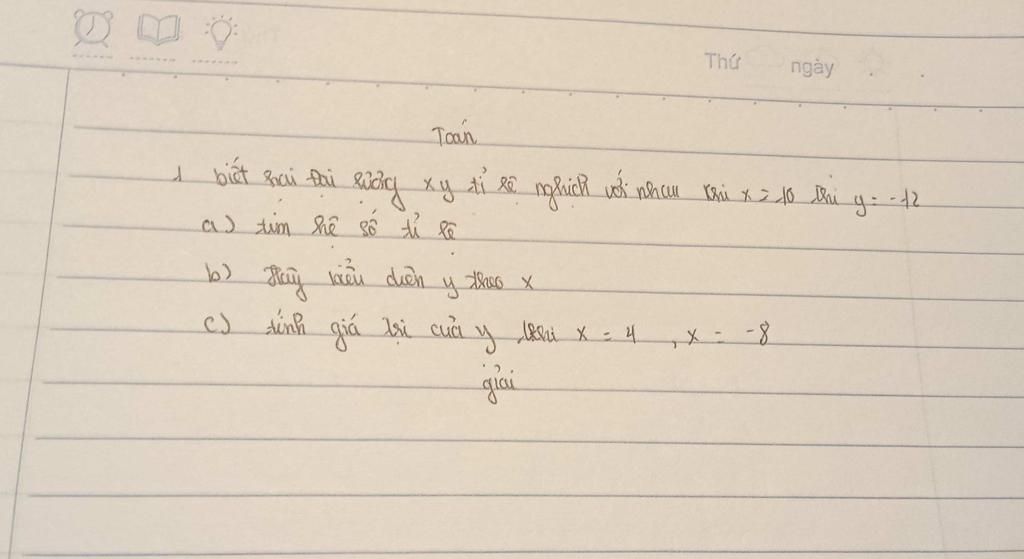 Thứ ngày
Toán
1 biết hai đại lượng x y tỉ lệ nghịch với nhau khi x = 10 thì y = -12
a) tìm hệ số tỉ lệ
b) Hãy biểu diễn y theo x
c) tính giá trị của y khi x = 4 , x = -8
giải